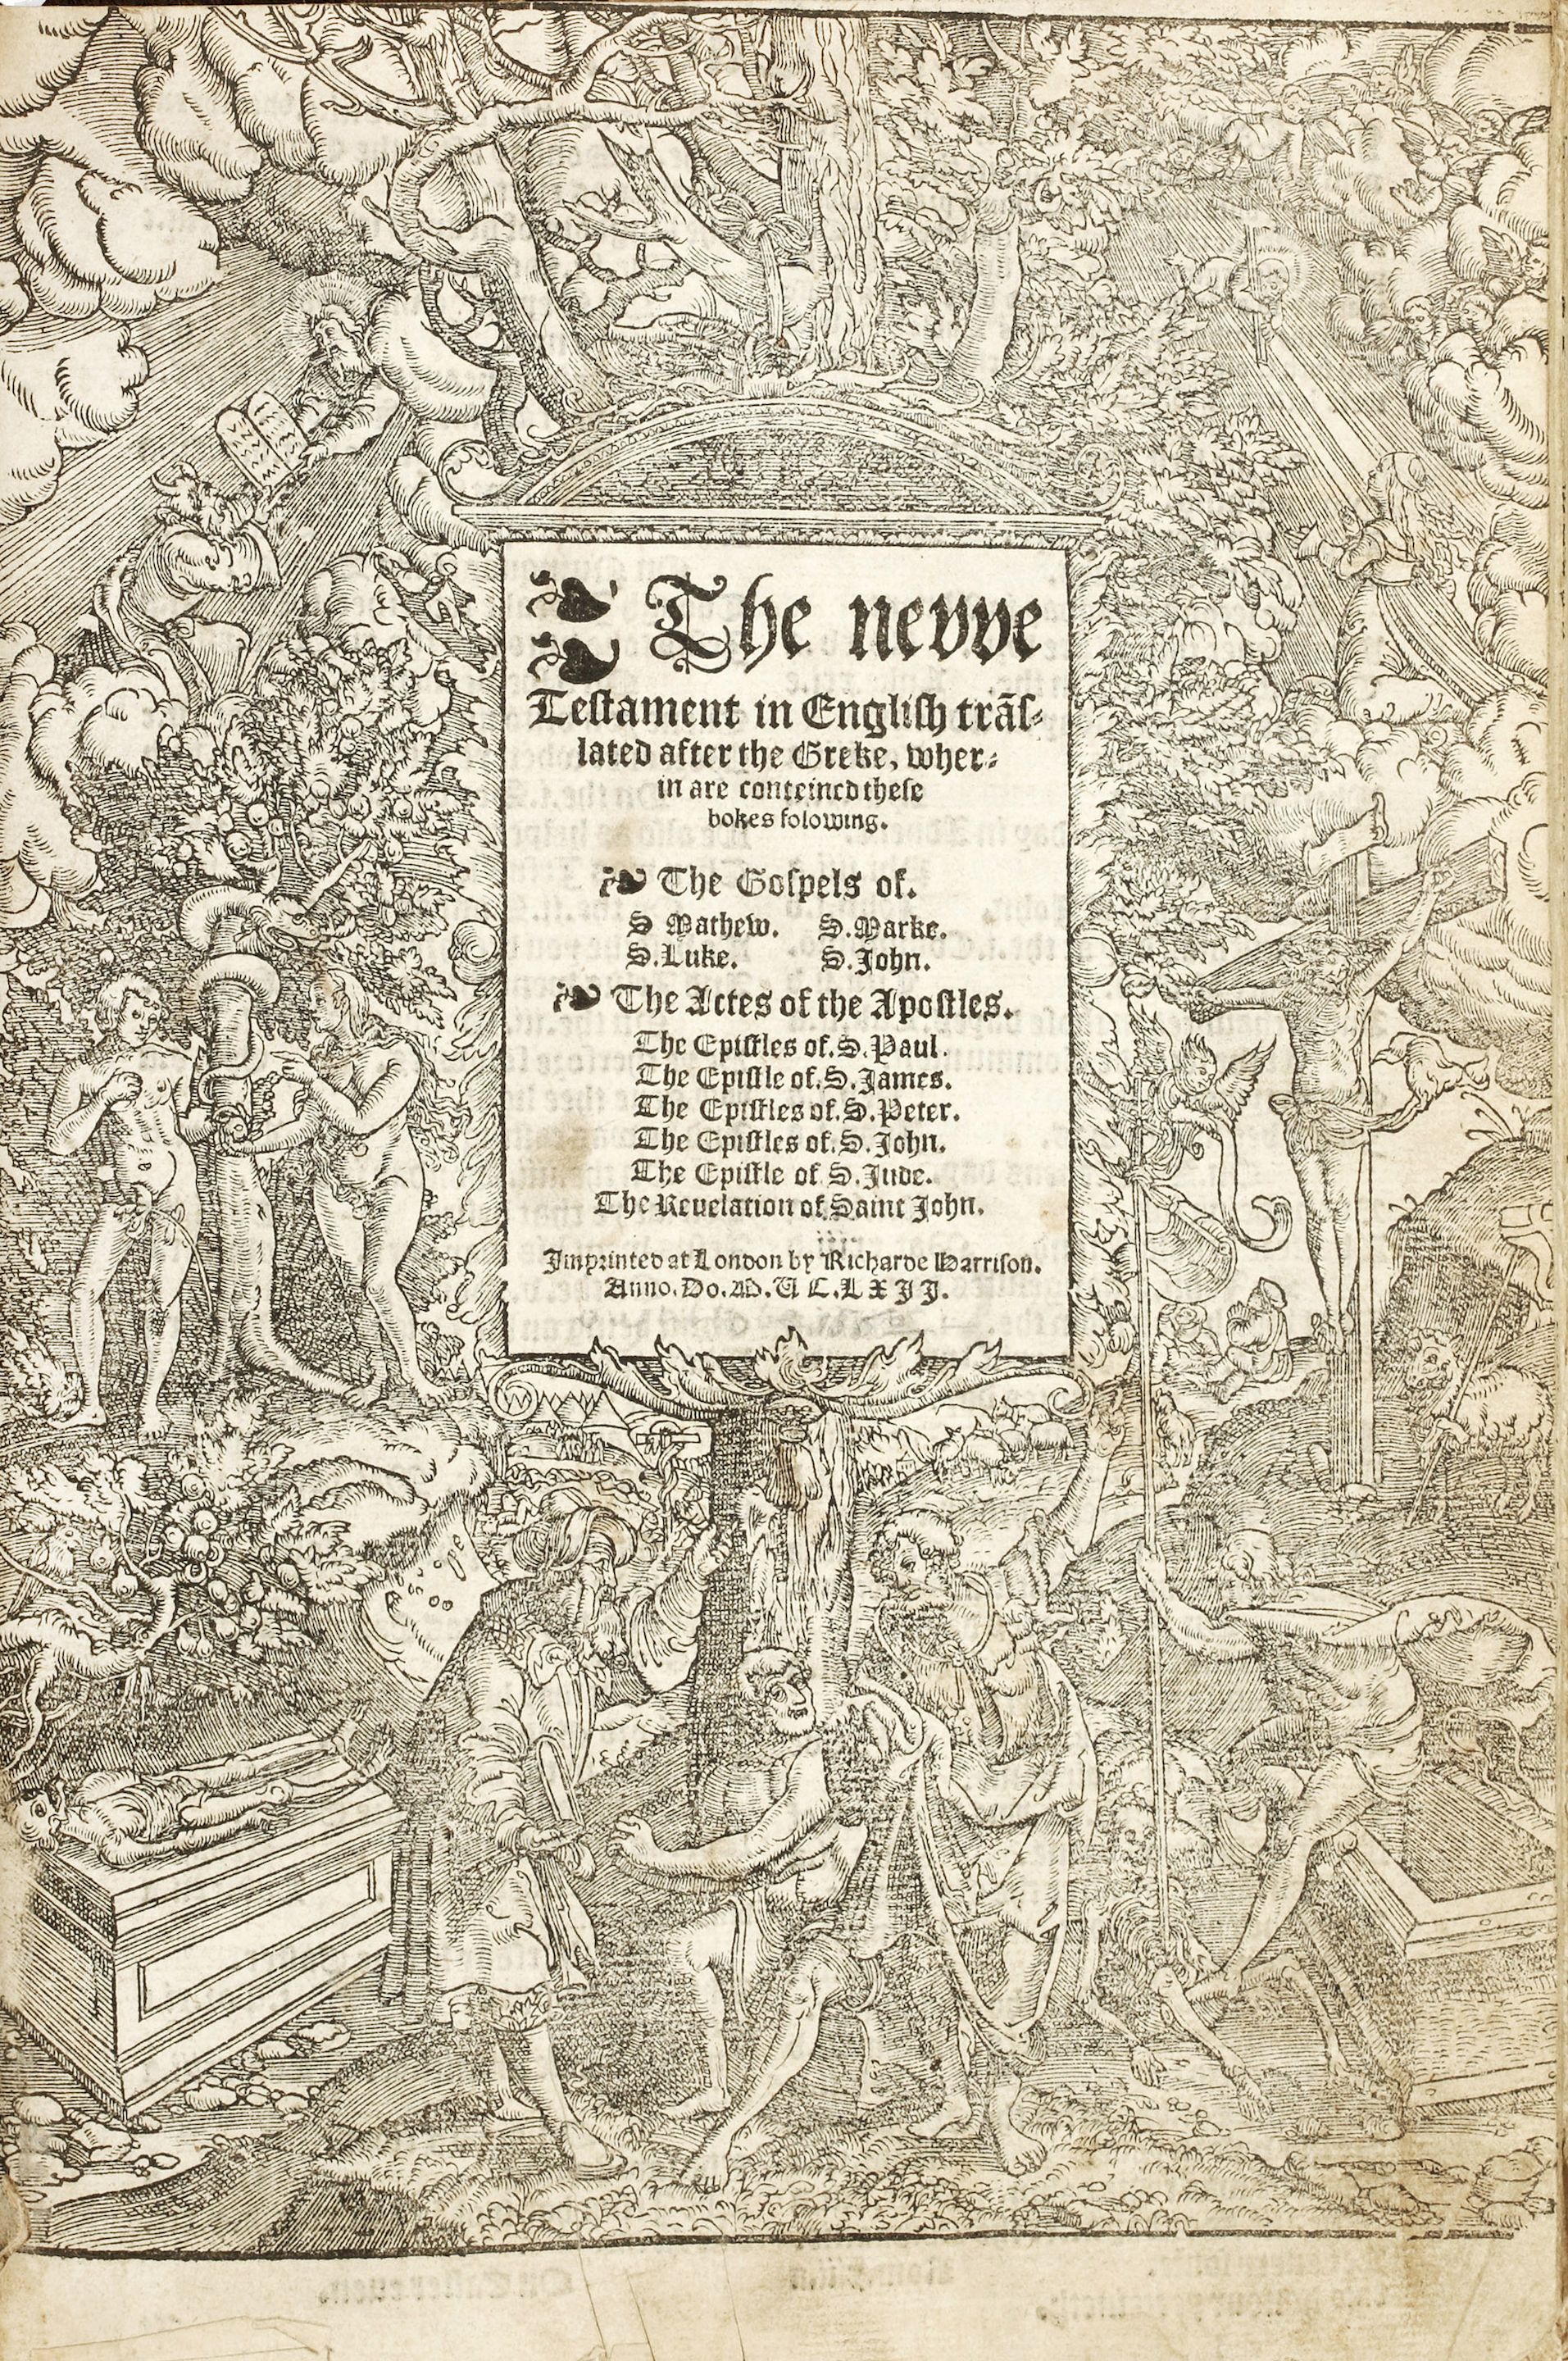 The nevve
Testament in English trãs-
lated after the Greke, wher-
in are conteined these
bokes folowing.
The Gospels of.
S Mathew. S.Marke.
S.Luke. S.John.
The Actes of the Apostles.
The Epistles of.S.Paul.
The Epistle of.S.James.
The Epistles of.S.Peter.
The Epistles of.S.John.
The Epistle of S.Jude.
The Reuelation of Saint John.
Imprinted at London by Richarde Harrison.
Anno. Do. M.